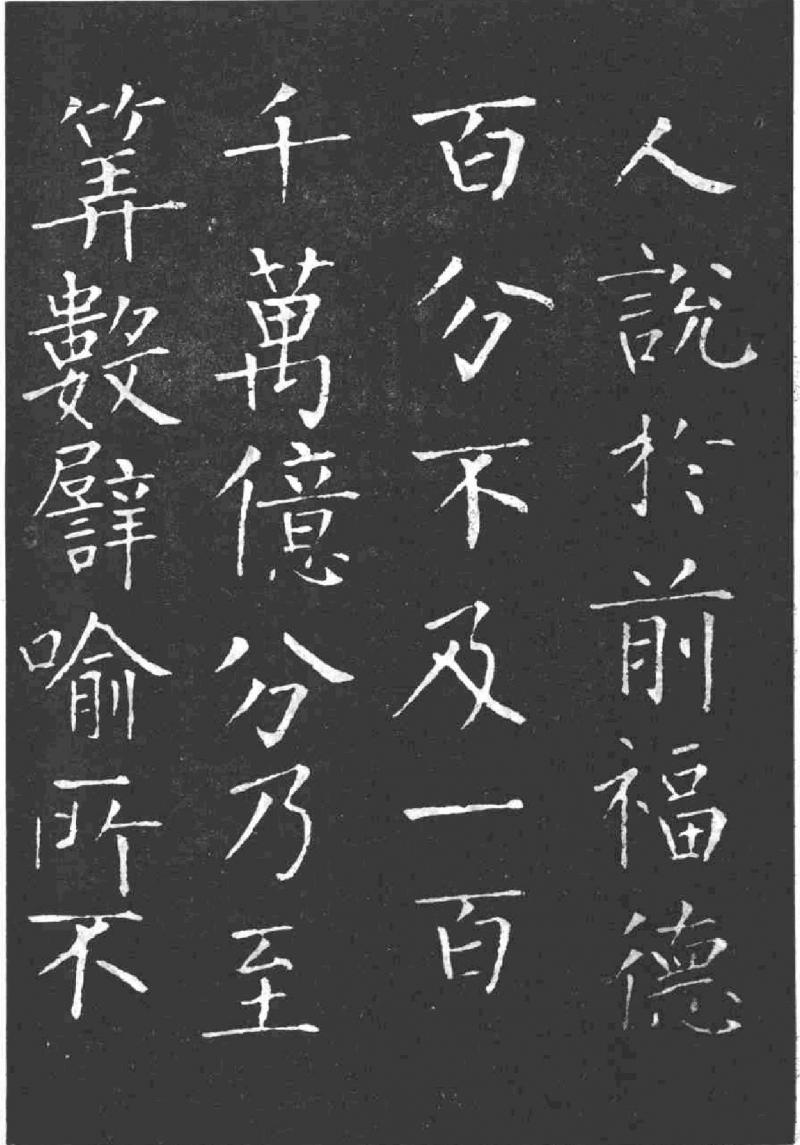 人說於前福德
百分不及一百
千萬億分乃至
筭數譬喻所不